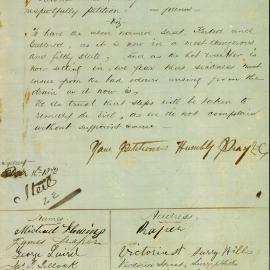 respectfully petition
Viz
To have the above named Street Kerbed and
Guttered, as it is now in a most dangerous
and filthy state, and as the hot weather is
now setting in we fear that sickness must
ensue from the bad odours arising from the
drain as it now is.
We do trust that steps will be taken to
remedy the Evil, as we do not complain
without sufficient cause
Your Petitioners Humbly Pray &c
Sydney
Names
Address
Michael Fleming
Draper
James Draper
George Laird
Victoria St Surry Hills
Victoria Street, Surry Hills